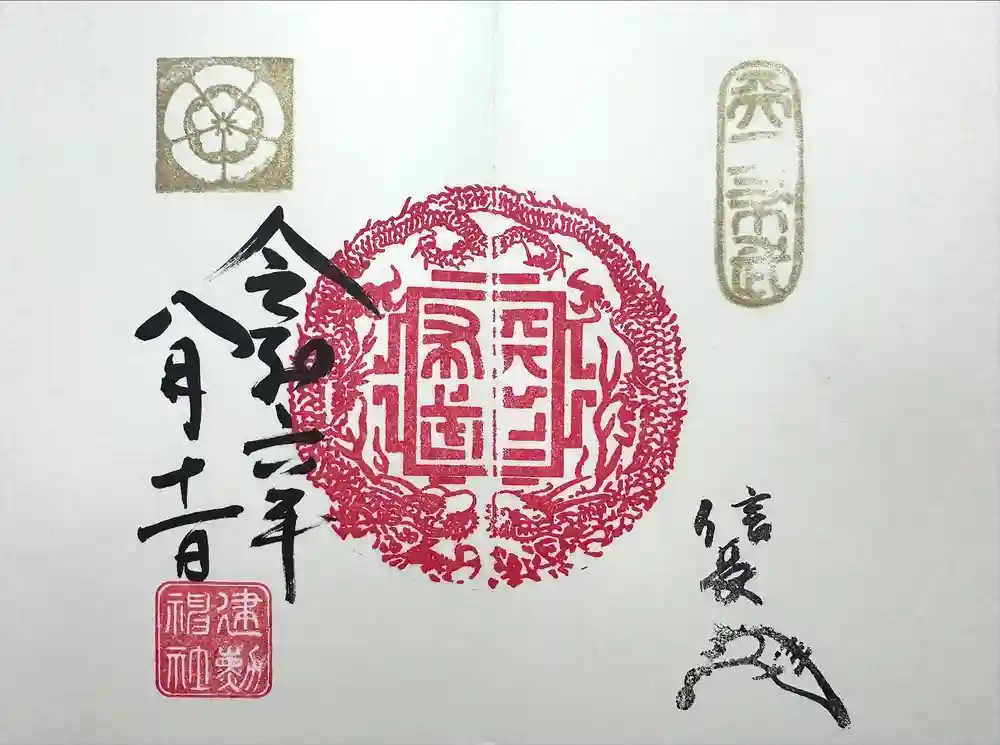 天下布武
信長
天下
布武
令和六年
八月十一日
建勲
神社